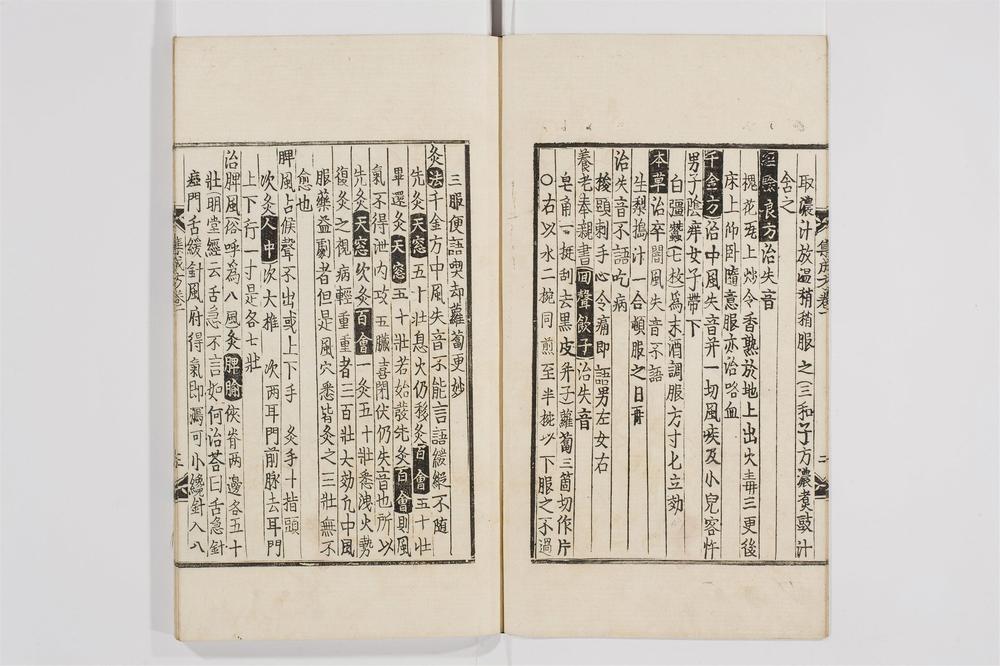 取濃汁放温稍稍服之(三和子方濃煮豉汁
含之
經驗良方治失音
槐花瓦上炒令香熟放地上出火毒三更後
床上仰卧隨意服亦治咯血
千金方治中風失音幷一切風疾及小兒客忤
男子陰痒女子帶下
白彊蠶七枚爲末酒調服方寸匕立効
本草治卒闇風失音不語
生梨搗汁一合頓服之日再
治失音不語吃病
捘頭刺手心令痛即語男左女右
養老奉親書回聲飲子治失音
皂角一挺刮去黑皮幷子蘿蔔三箇切作片
○右以水二椀同煎至半椀以下服之不過
集成方卷一
三服便語喫却蘿蔔更妙
灸法千金方中風失音不能言語緩縱不隨
先灸天窓五十壯息火仍移灸百會五十壯
畢還灸天窓五十壯若始發先灸百會則風
氣不得泄内攻五臟喜閉伏仍失音也所以
先灸天窓次灸百會一灸五十壯悉洩火勢
復灸之視病輕重重者三百壯大効凢中風
服藥益劇者但是風穴悉皆灸之三壯無不
愈也
脾風占候聲不出或上下手 灸手十指頭
次灸人中次大椎 次兩耳門前脉去耳門
上下行一寸是各七壯
治脾風(俗呼爲八風灸脾腧俠脊兩邊各五十
壯(明堂經云舌急不言如何治荅曰舌急針
瘂門舌緩針風府得氣即瀉可小繞針入八
集成方卷一